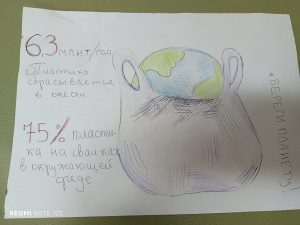 6,3 млн т/год
Пластика
сбрасывается
в океан
75% пласти-
ка на свалках
в окружающей
среде
БЕРЕГИ ПЛАНЕТУ!
REDMI NOTE 10S